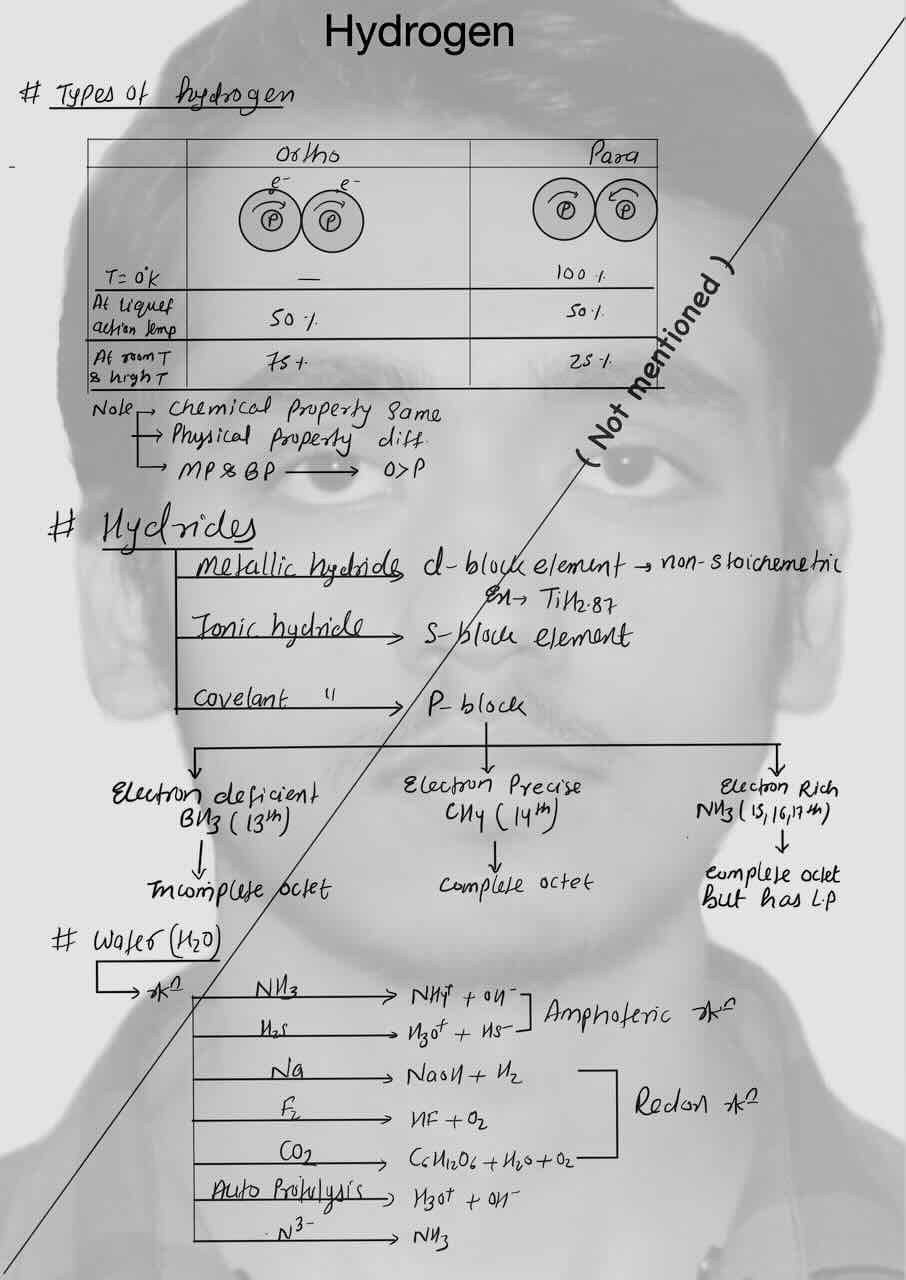 Hydrogen
# Types of hydrogen
Ortho Para
e- e-
P P P P
T= 0°K — 100 %
At liquef
action temp 50 % 50 %
At room T
& high T 75 % 25 %
Note → Chemical Property Same
→ Physical Property diff.
→ MP & BP → O>P
( Not mentioned )
# Hydrides
Metallic hydride d-block element → non-stoichemetric
Ex→ TiH2.87
Ionic hydride s-block element
Covelant " P-block
Electron deficient
BH3 (13th)
Incomplete octet
Electron Precise
CH4 (14th)
Complete octet
Electron Rich
NH3 (15,16,17th)
complete octet
but has L.P
# Water (H2O)
→ rxn
NH3 → NH4+ + OH-
H2S → H3O+ + HS-
Amphoteric rxn
Na → NaOH + H2
F2 → HF + O2
CO2 → C6H12O6 + H2O + O2
Redox rxn
Auto Protolysis → H3O+ + OH-
N3- → NH3